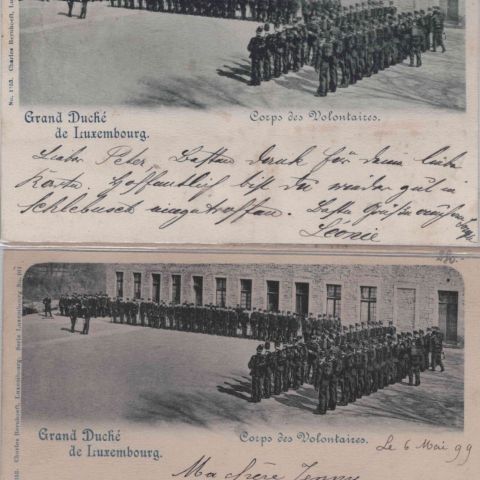 Grand Duché
de Luxembourg.
Corps des Volontaires.
Lieber Peter. Besten Dank für deine liebe
Karte. Hoffentlich bist du wieder gut in
Schlebusch eingetroffen. Beste Grüße
Léonie
280.-
Charles Bernhoeft, Luxembourg.
Grand Duché
de Luxembourg.
Corps des Volontaires.
Le 6 Mai 99
Ma chère Jenny